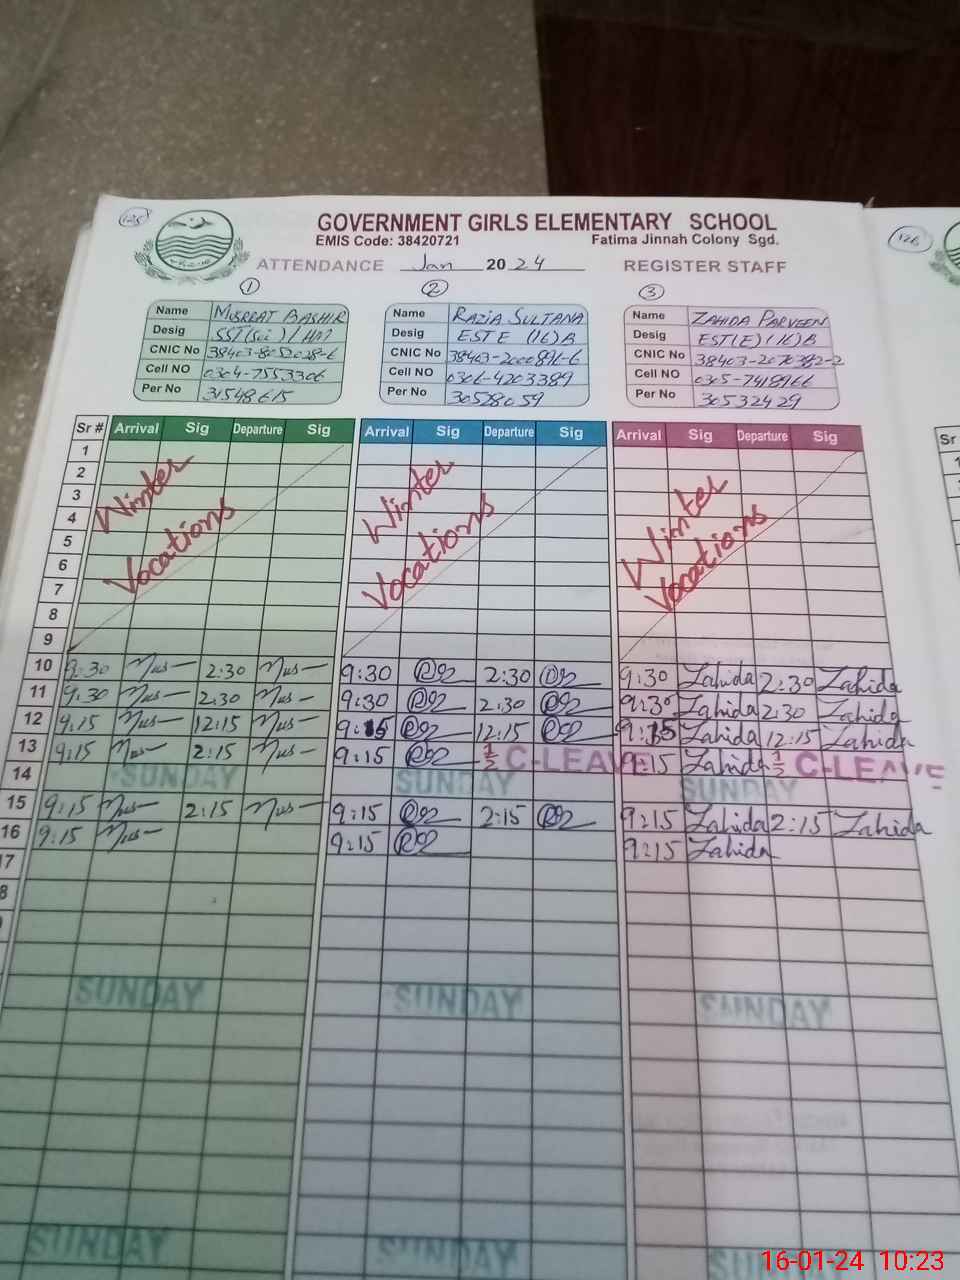 125
GOVERNMENT GIRLS ELEMENTARY SCHOOL
EMIS Code: 38420721 Fatima Jinnah Colony Sgd.
126
ATTENDANCE Jan 2024 REGISTER STAFF
1 2 3
Name MUSRRAT BASHIR Name RAZIA SULTANA Name ZAHIDA PARVEEN
Desig SST(Sci)/HM Desig ESTE (16)B Desig EST(E)(16)B
CNIC No 38403-8052028-6 CNIC No 38403-2000896-6 CNIC No 38403-2070382-2
Cell NO 0304-7553306 Cell NO 0306-4203389 Cell NO 0305-7418966
Per No 31548615 Per No 30528059 Per No 30532429
Sr # Arrival Sig Departure Sig Arrival Sig Departure Sig Arrival Sig Departure Sig Sr
1
2
3
4
5
6
7
8
9
Winter Vocations Winter Vocations Winter Vocations
10 9:30 Mus 2:30 Mus 9:30 2:30 9:30 Zahida 2:30 Zahida
11 9:30 Mus 2:30 Mus 9:30 2:30 9:30 Zahida 2:30 Zahida
12 9:15 Mus 12:15 Mus 9:15 12:15 9:15 Zahida 12:15 Zahida
13 9:15 Mus 2:15 9:15 1/2 C-LEAVE 9:15 Zahida 1/2 C-LEAVE
14 SUNDAY SUNDAY SUNDAY
15 9:15 Mus 2:15 Mus 9:15 2:15 9:15 Zahida 2:15 Zahida
16 9:15 Mus 9:15 9:15 Zahida
17
8
9
SUNDAY SUNDAY SUNDAY
SUNDAY SUNDAY SUNDAY
16-01-24 10:23